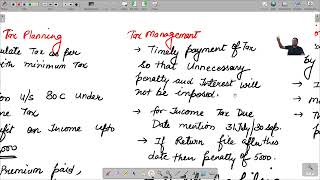 Tax Planning
culate Tax as per
with minimum Tax
000 u/s 80C under
me Tax
fit on Income upto
,000
Premium paid,
Tax Management
→ Timely payment of Tax
so that Unnecessary
penalty and Interest will
not be imposed.
→ for Income Tax Due
Date mention 31 July / 30 Sep.
→ If Return file after this
date then penalty of 5000.
By